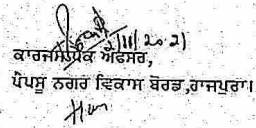 11/2021
ਕਾਰਜਸਾਧਕ ਅਫਸਰ,
ਪੈਪਸੂ ਨਗਰ ਵਿਕਾਸ ਬੋਰਡ,ਰਾਜਪੁਰਾ।